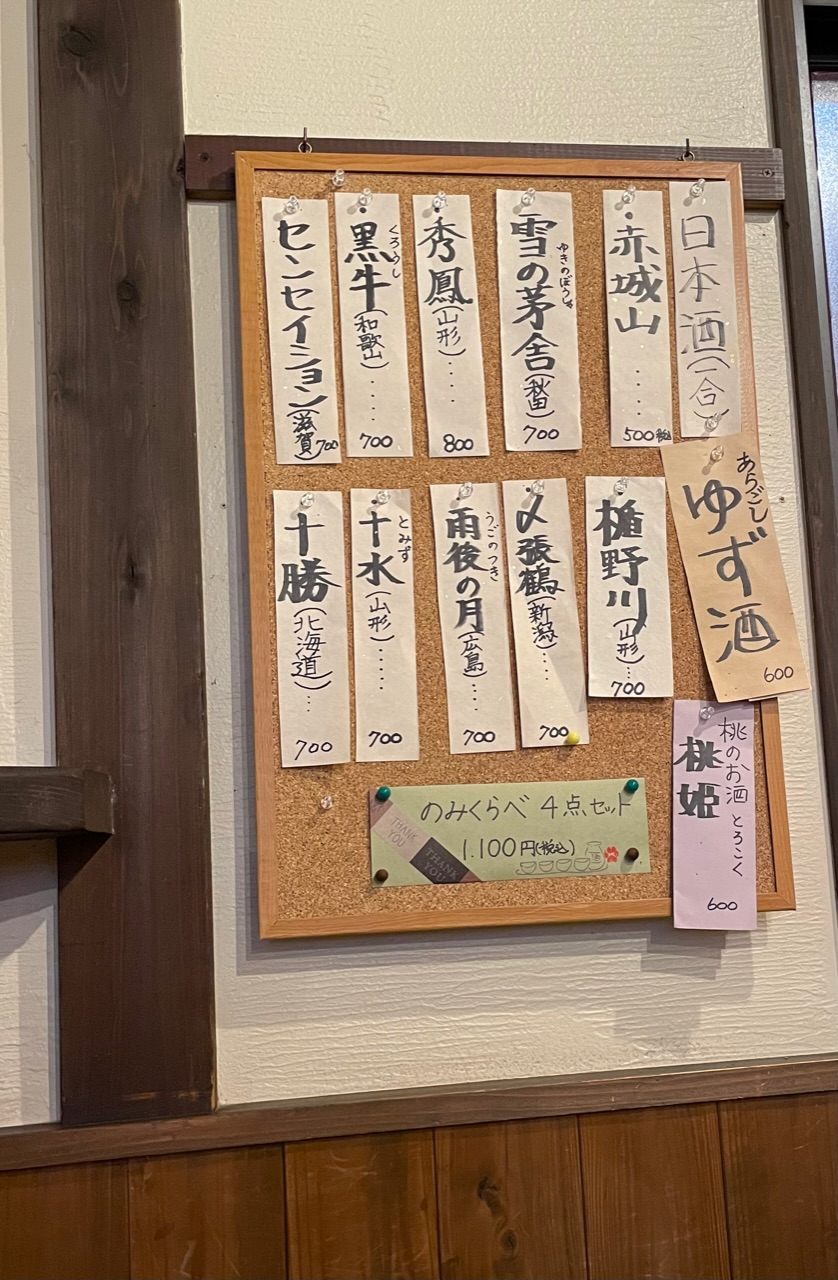 日本酒(一合)
赤城山 . . . 500税込
雪の茅舎(秋田)
ゆきのぼうしゃ
700
秀鳳(山形) . . . 800
黒牛(和歌山) . . . . 700
くろうし
センセイション(滋賀)700
あらごし
ゆず酒
600
楯野川(山形) . . . 700
〆張鶴(新潟) . . . 700
雨後の月(広島) . . . . 700
うごのつき
十水(山形) . . . . . 700
とみず
十勝(北海道) . . . 700
桃のお酒 とろこく
桃姫
600
のみくらべ 4点セット
1.100円(税込)
THANK YOU
THANK YOU